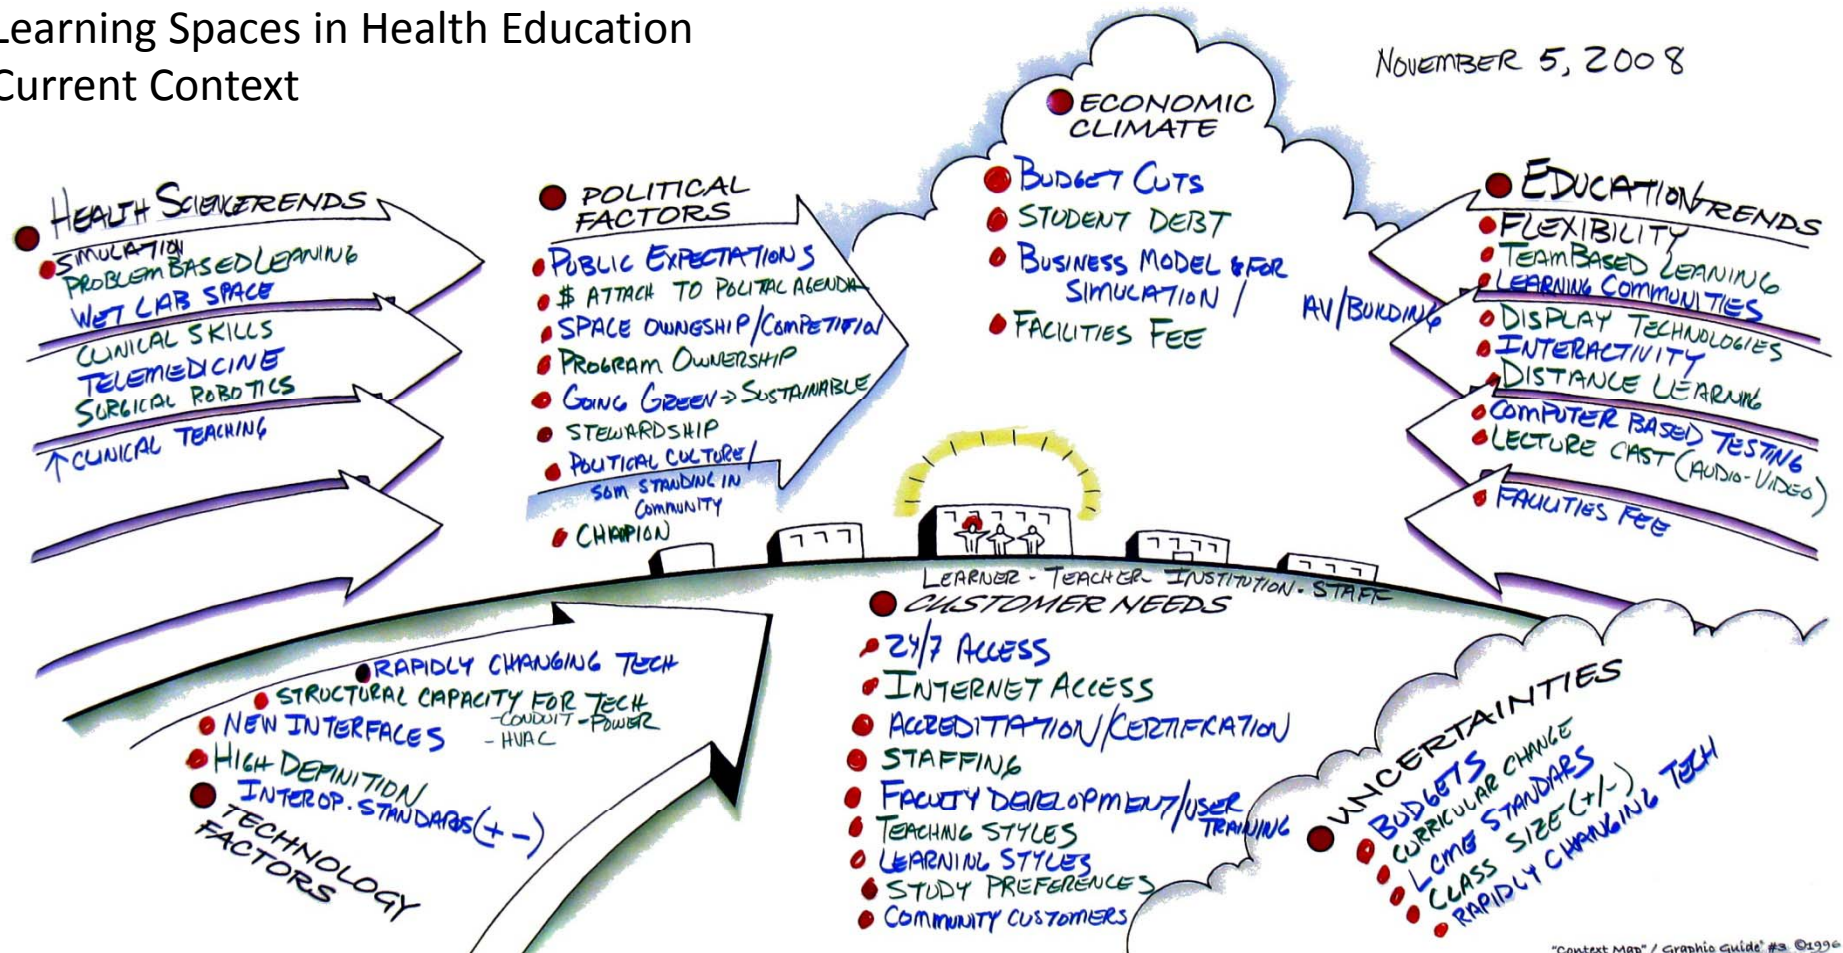 Learning Spaces in Health Education
Current Context
NOVEMBER 5, 2008
HEALTH SCIENCE TRENDS
SIMULATION
PROBLEM BASED LEANING
WET LAB SPACE
CLINICAL SKILLS
TELEMEDICINE
SURGICAL ROBOTICS
↑ CLINICAL TEACHING
POLITICAL
FACTORS
PUBLIC EXPECTATIONS
$ ATTACH TO POLITAL AGENDA
SPACE OWNESHIP/COMPETITION
PROGRAM OWNERSHIP
GOING GREEN → SUSTAINABLE
STEWARDSHIP
POLITICAL CULTURE/
SOM STANDING IN
COMMUNITY
CHAMPION
ECONOMIC
CLIMATE
BUDGET CUTS
STUDENT DEBT
BUSINESS MODEL $ FOR
SIMULATION / AV/BUILDING
FACILITIES FEE
EDUCATION TRENDS
FLEXIBILITY
TEAM BASED LEANING
LEARNING COMMUNITIES
DISPLAY TECHNOLOGIES
INTERACTIVITY
DISTANCE LEARNING
COMPUTER BASED TESTING
LECTURE CAST (AUDIO-VIDEO)
FACILITIES FEE
LEARNER - TEACHER - INSTITUTION - STAFF
CUSTOMER NEEDS
24/7 ACCESS
INTERNET ACCESS
ACCREDITATION/CERTIFICATION
STAFFING
FACULTY DEVELOPMENT/USER
TRAINING
TEACHING STYLES
LEARNING STYLES
STUDY PREFERENCES
COMMUNITY CUSTOMERS
RAPIDLY CHANGING TECH
STRUCTURAL CAPACITY FOR TECH
- CONDUIT - POWER
- HVAC
NEW INTERFACES
HIGH DEFINITION
INTEROP. STANDARDS (+ -)
TECHNOLOGY
FACTORS
UNCERTAINTIES
BUDGETS
CURRICULAR CHANGE
LCME STANDARS
CLASS SIZE (+/-)
RAPIDLY CHANGING TECH
"Context Map" / Graphic Guide® #3 ©1996